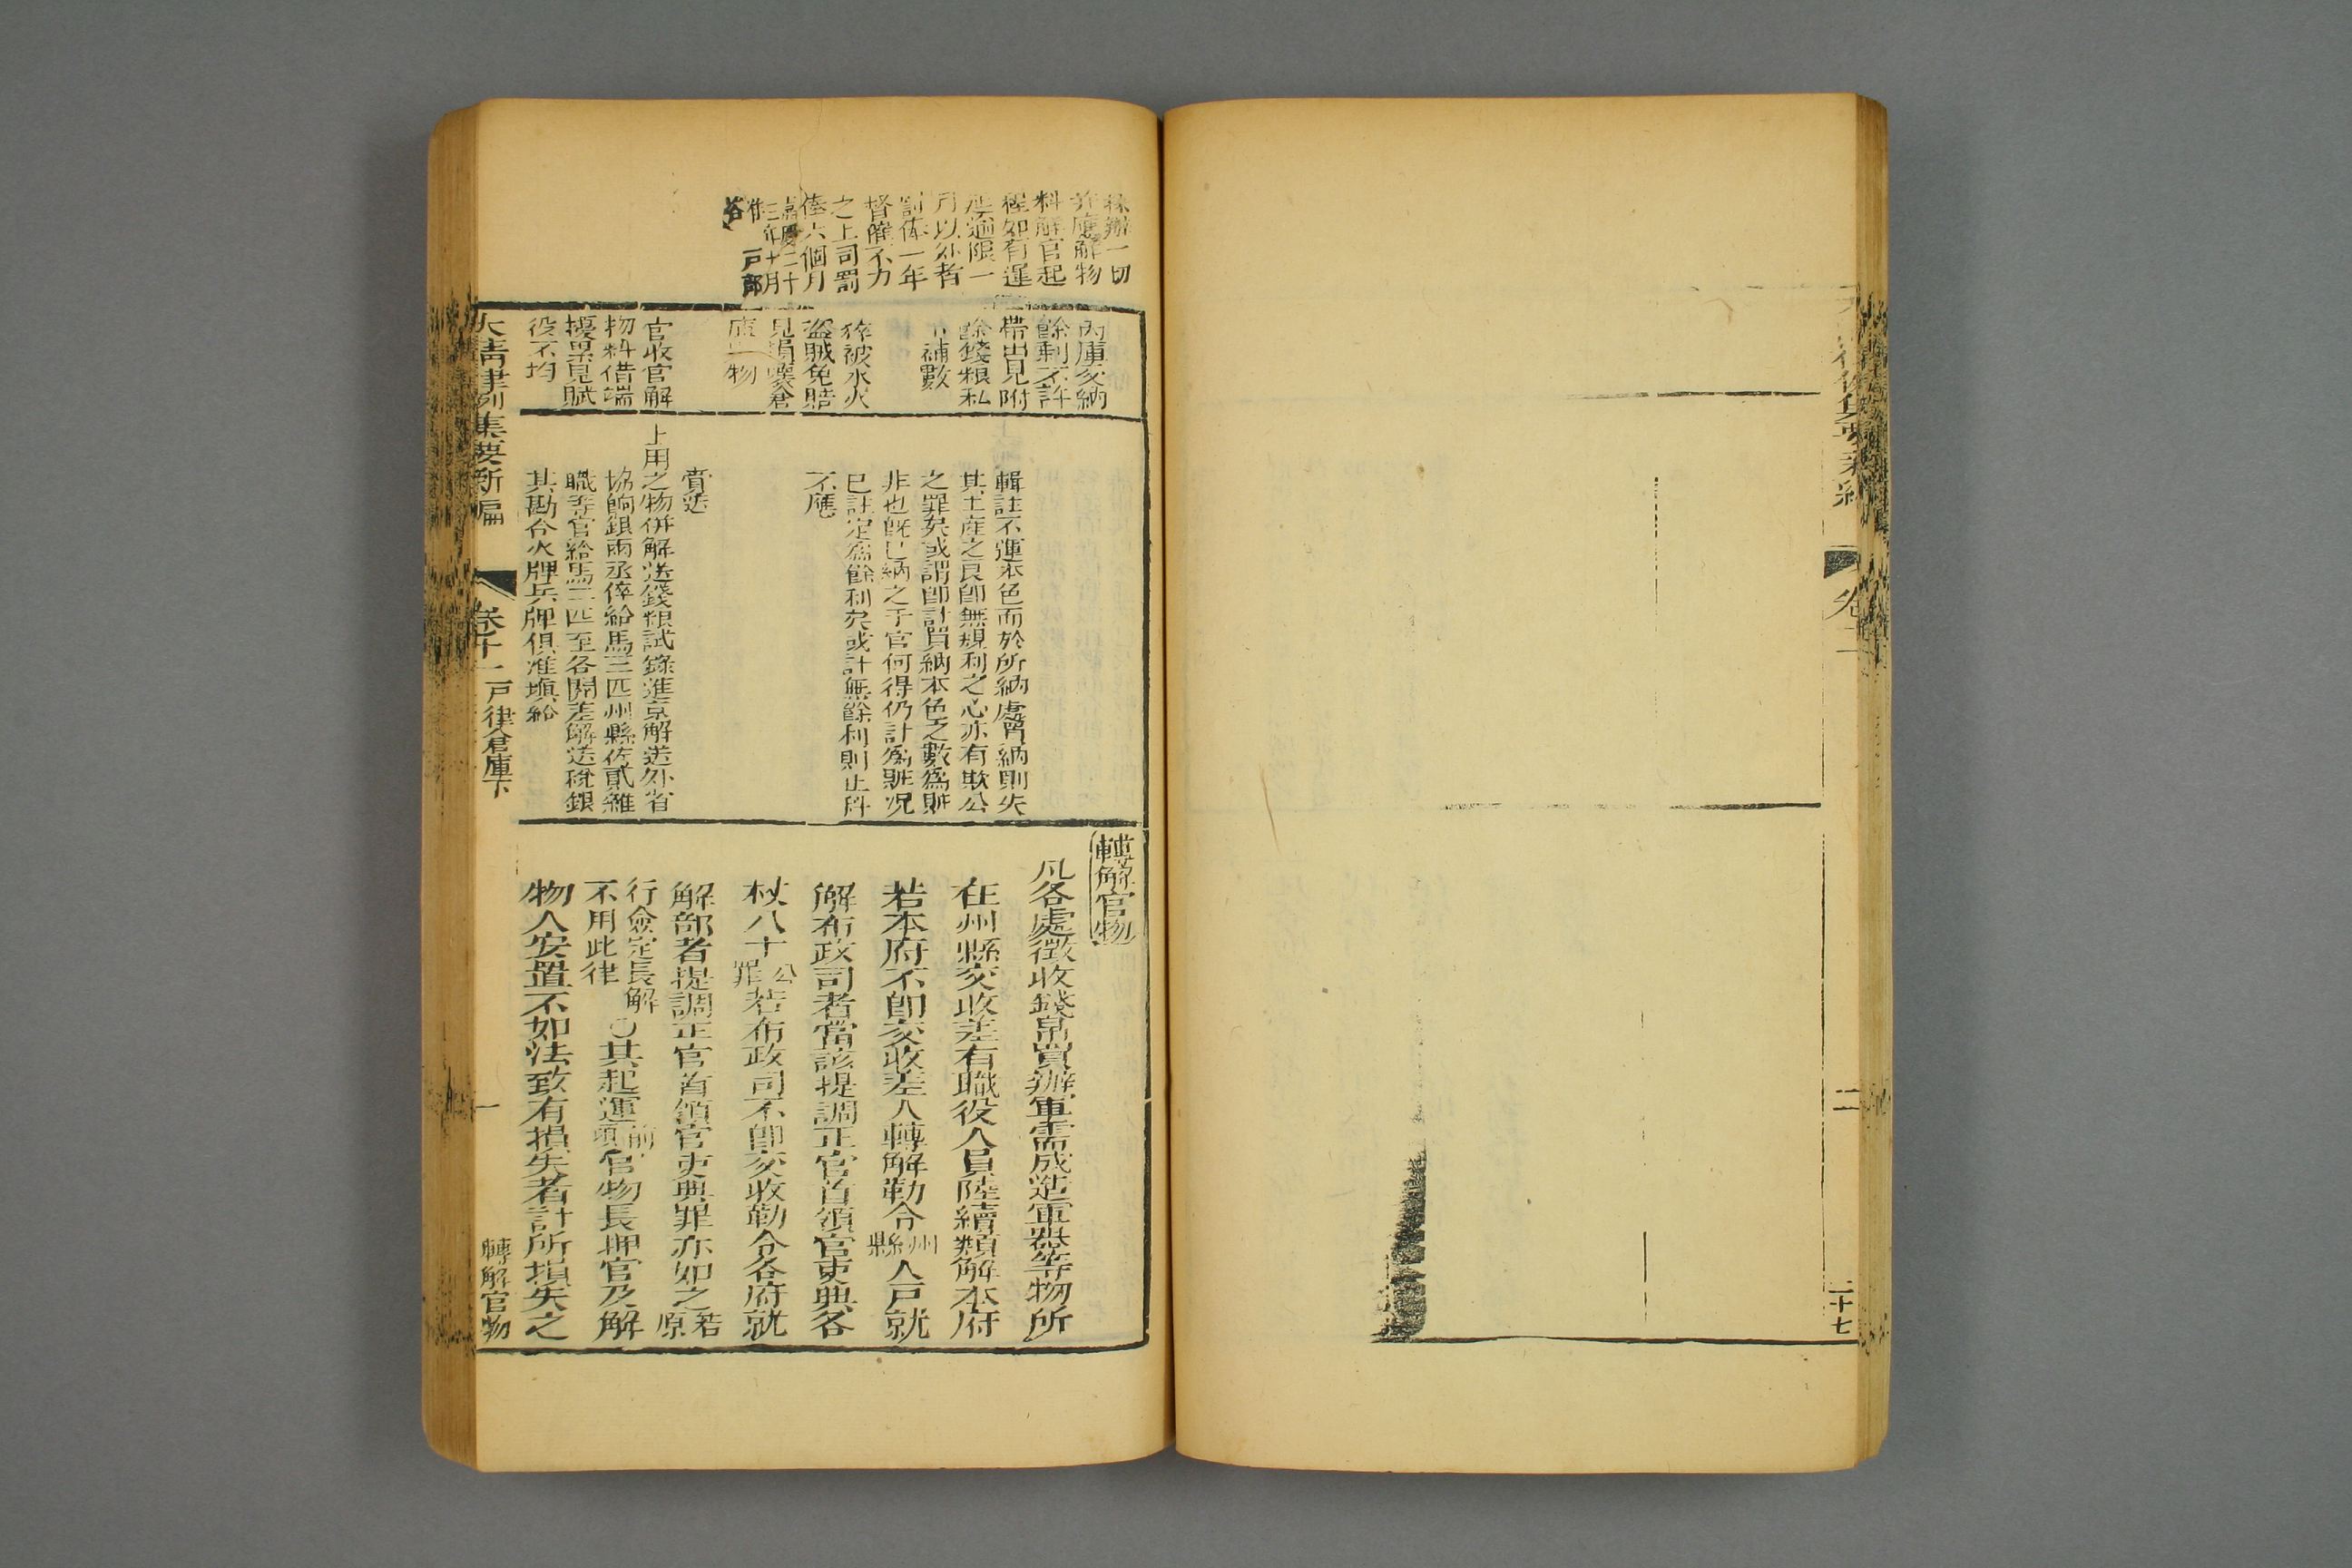 二
二十七
採辦一切
并應解物
料解官起
程如有遲
延逾限一
月以外者
罰俸一年
督催不力
之上司罰
俸六個月
嘉慶二十
三年十月
准 戶部
咨
內庫交納
餘剩不許
帶出見附
餘錢粮私
下補數
猝被水火
盜賊免賠
見損壞倉
庫財物
官收官解
物料借端
擾累見賦
役不均
輯註不運本色而於所納處買納則失
其土產之良卽無規利之心亦有欺公
之罪矣或謂卽計買納本色之數爲贓
非也旣已納之于官何得仍計爲贓况
已註定爲餘利矣或計無餘利則止科
不應
賫送
上用之物併解送錢糧試錄進京解送外省
協餉銀兩丞倅給馬三匹州縣佐貳雜
職等官給馬二匹至各關差解送稅銀
其勘合火牌兵牌俱准塡給
轉解官物
凡各處徵收錢帛買辦軍需成造軍器等物所
在州縣交收差有職役人員陸續類解本府
若本府不卽交收差人轉解勒令州縣人戶就
解布政司者當該提調正官首領官吏典各
杖八十公罪若布政司不卽交收勒令各府就
解部者提調正官首領官吏典罪亦如之若原
行僉定長解不用此律○其起運前項官物長押官及解
物人安置不如法致有損失者計所損失之
大清律例集要新編
卷十一 戶律倉庫下
一
轉解官物